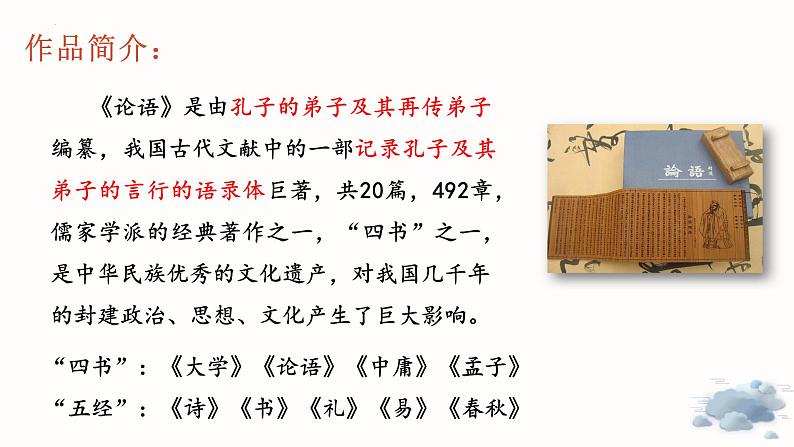 作品简介：
《论语》是由孔子的弟子及其再传弟子
编纂，我国古代文献中的一部记录孔子及其
弟子的言行的语录体巨著，共20篇，492章，
儒家学派的经典著作之一，“四书”之一，
是中华民族优秀的文化遗产，对我国几千年
的封建政治、思想、文化产生了巨大影响。
“四书”：《大学》《论语》《中庸》《孟子》
“五经”：《诗》《书》《礼》《易》《春秋》
論語